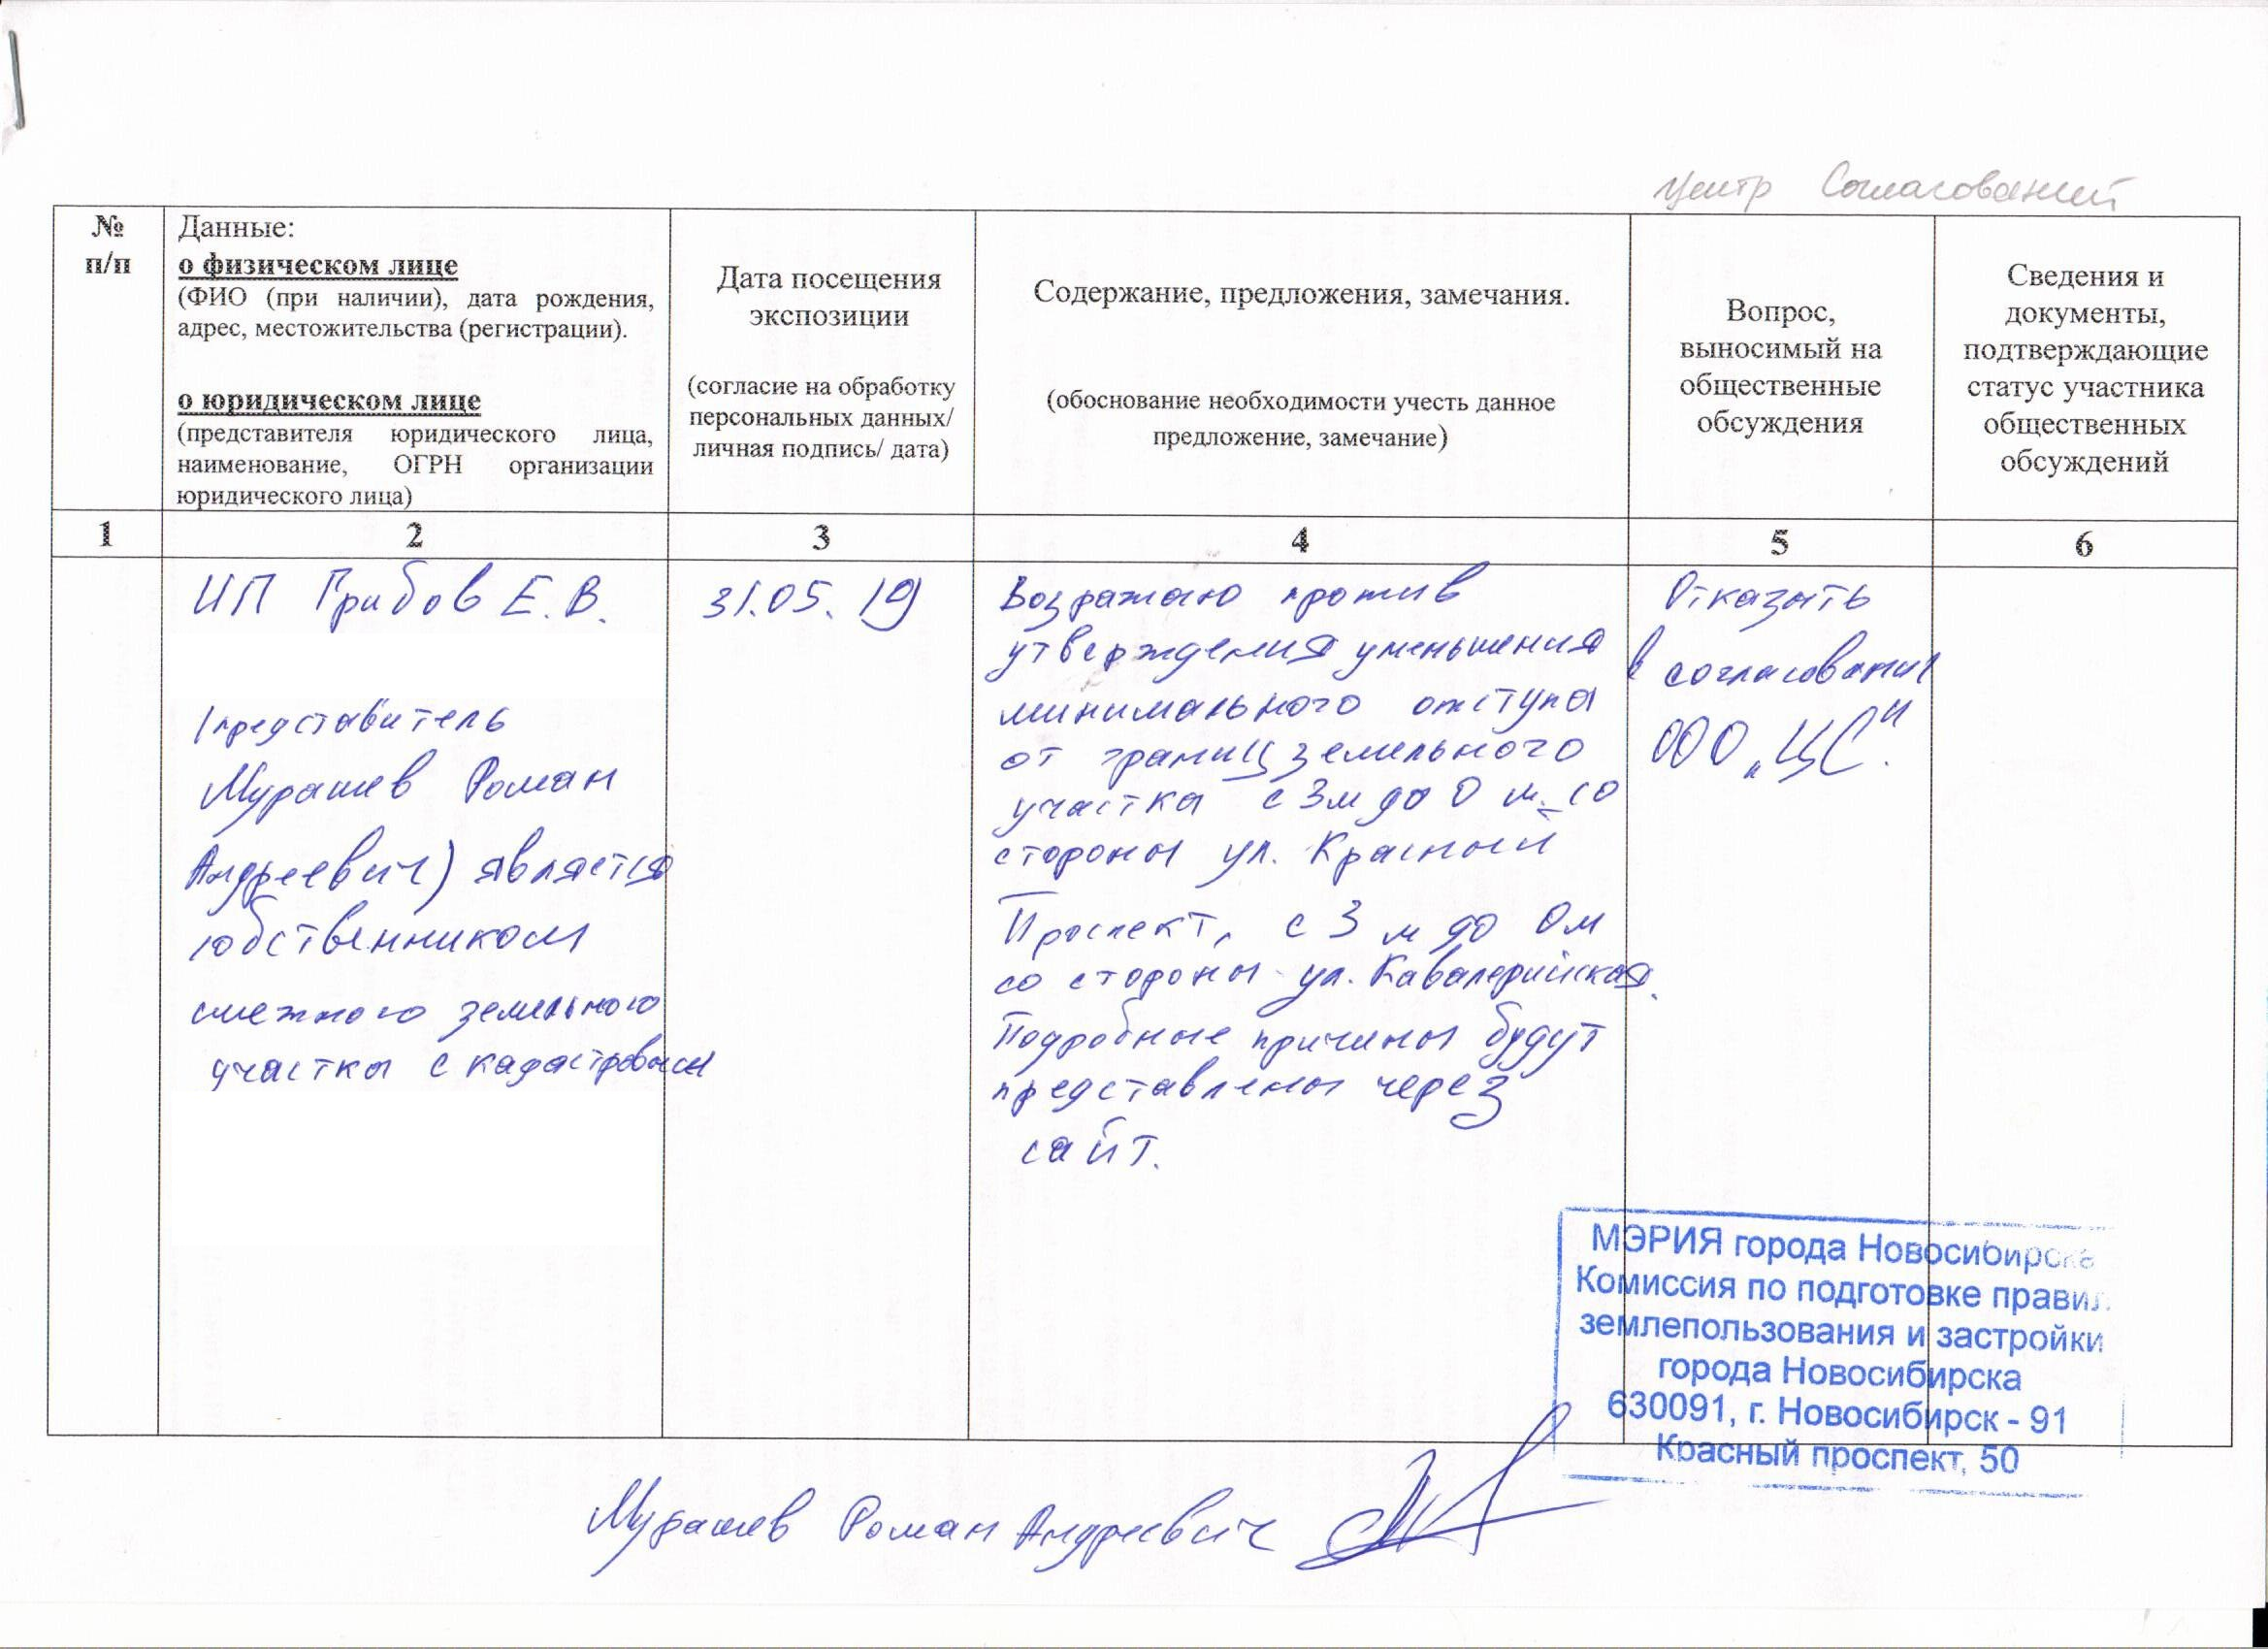 Центр Согласований
№
п/п
Данные:
о физическом лице
(ФИО (при наличии), дата рождения,
адрес, местожительства (регистрации).
о юридическом лице
(представителя юридического лица,
наименование, ОГРН организации
юридического лица)
Дата посещения
экспозиции
(согласие на обработку
персональных данных/
личная подпись/ дата)
Содержание, предложения, замечания.
(обоснование необходимости учесть данное
предложение, замечание)
Вопрос,
выносимый на
общественные
обсуждения
Сведения и
документы,
подтверждающие
статус участника
общественных
обсуждений
1
2
3
4
5
6
ИП Грибов Е.В.
(представитель
Мурашев Роман
Андреевич) является
собственником
смежного земельного
участка с кадастровым
31.05.19
Возражаю против
утверждения уменьшения
минимального отступа
от границ земельного
участка с 3м до 0 м. со
стороны ул. Красный
Проспект, с 3 м до 0м
со стороны ул. Кавалерийская.
Подробные причины будут
представлены через
сайт.
Отказать
в согласовании
ООО „ЦС".
МЭРИЯ города Новосибирска
Комиссия по подготовке правил
землепользования и застройки
города Новосибирска
630091, г. Новосибирск - 91
Красный проспект, 50
Мурашев Роман Андреевич